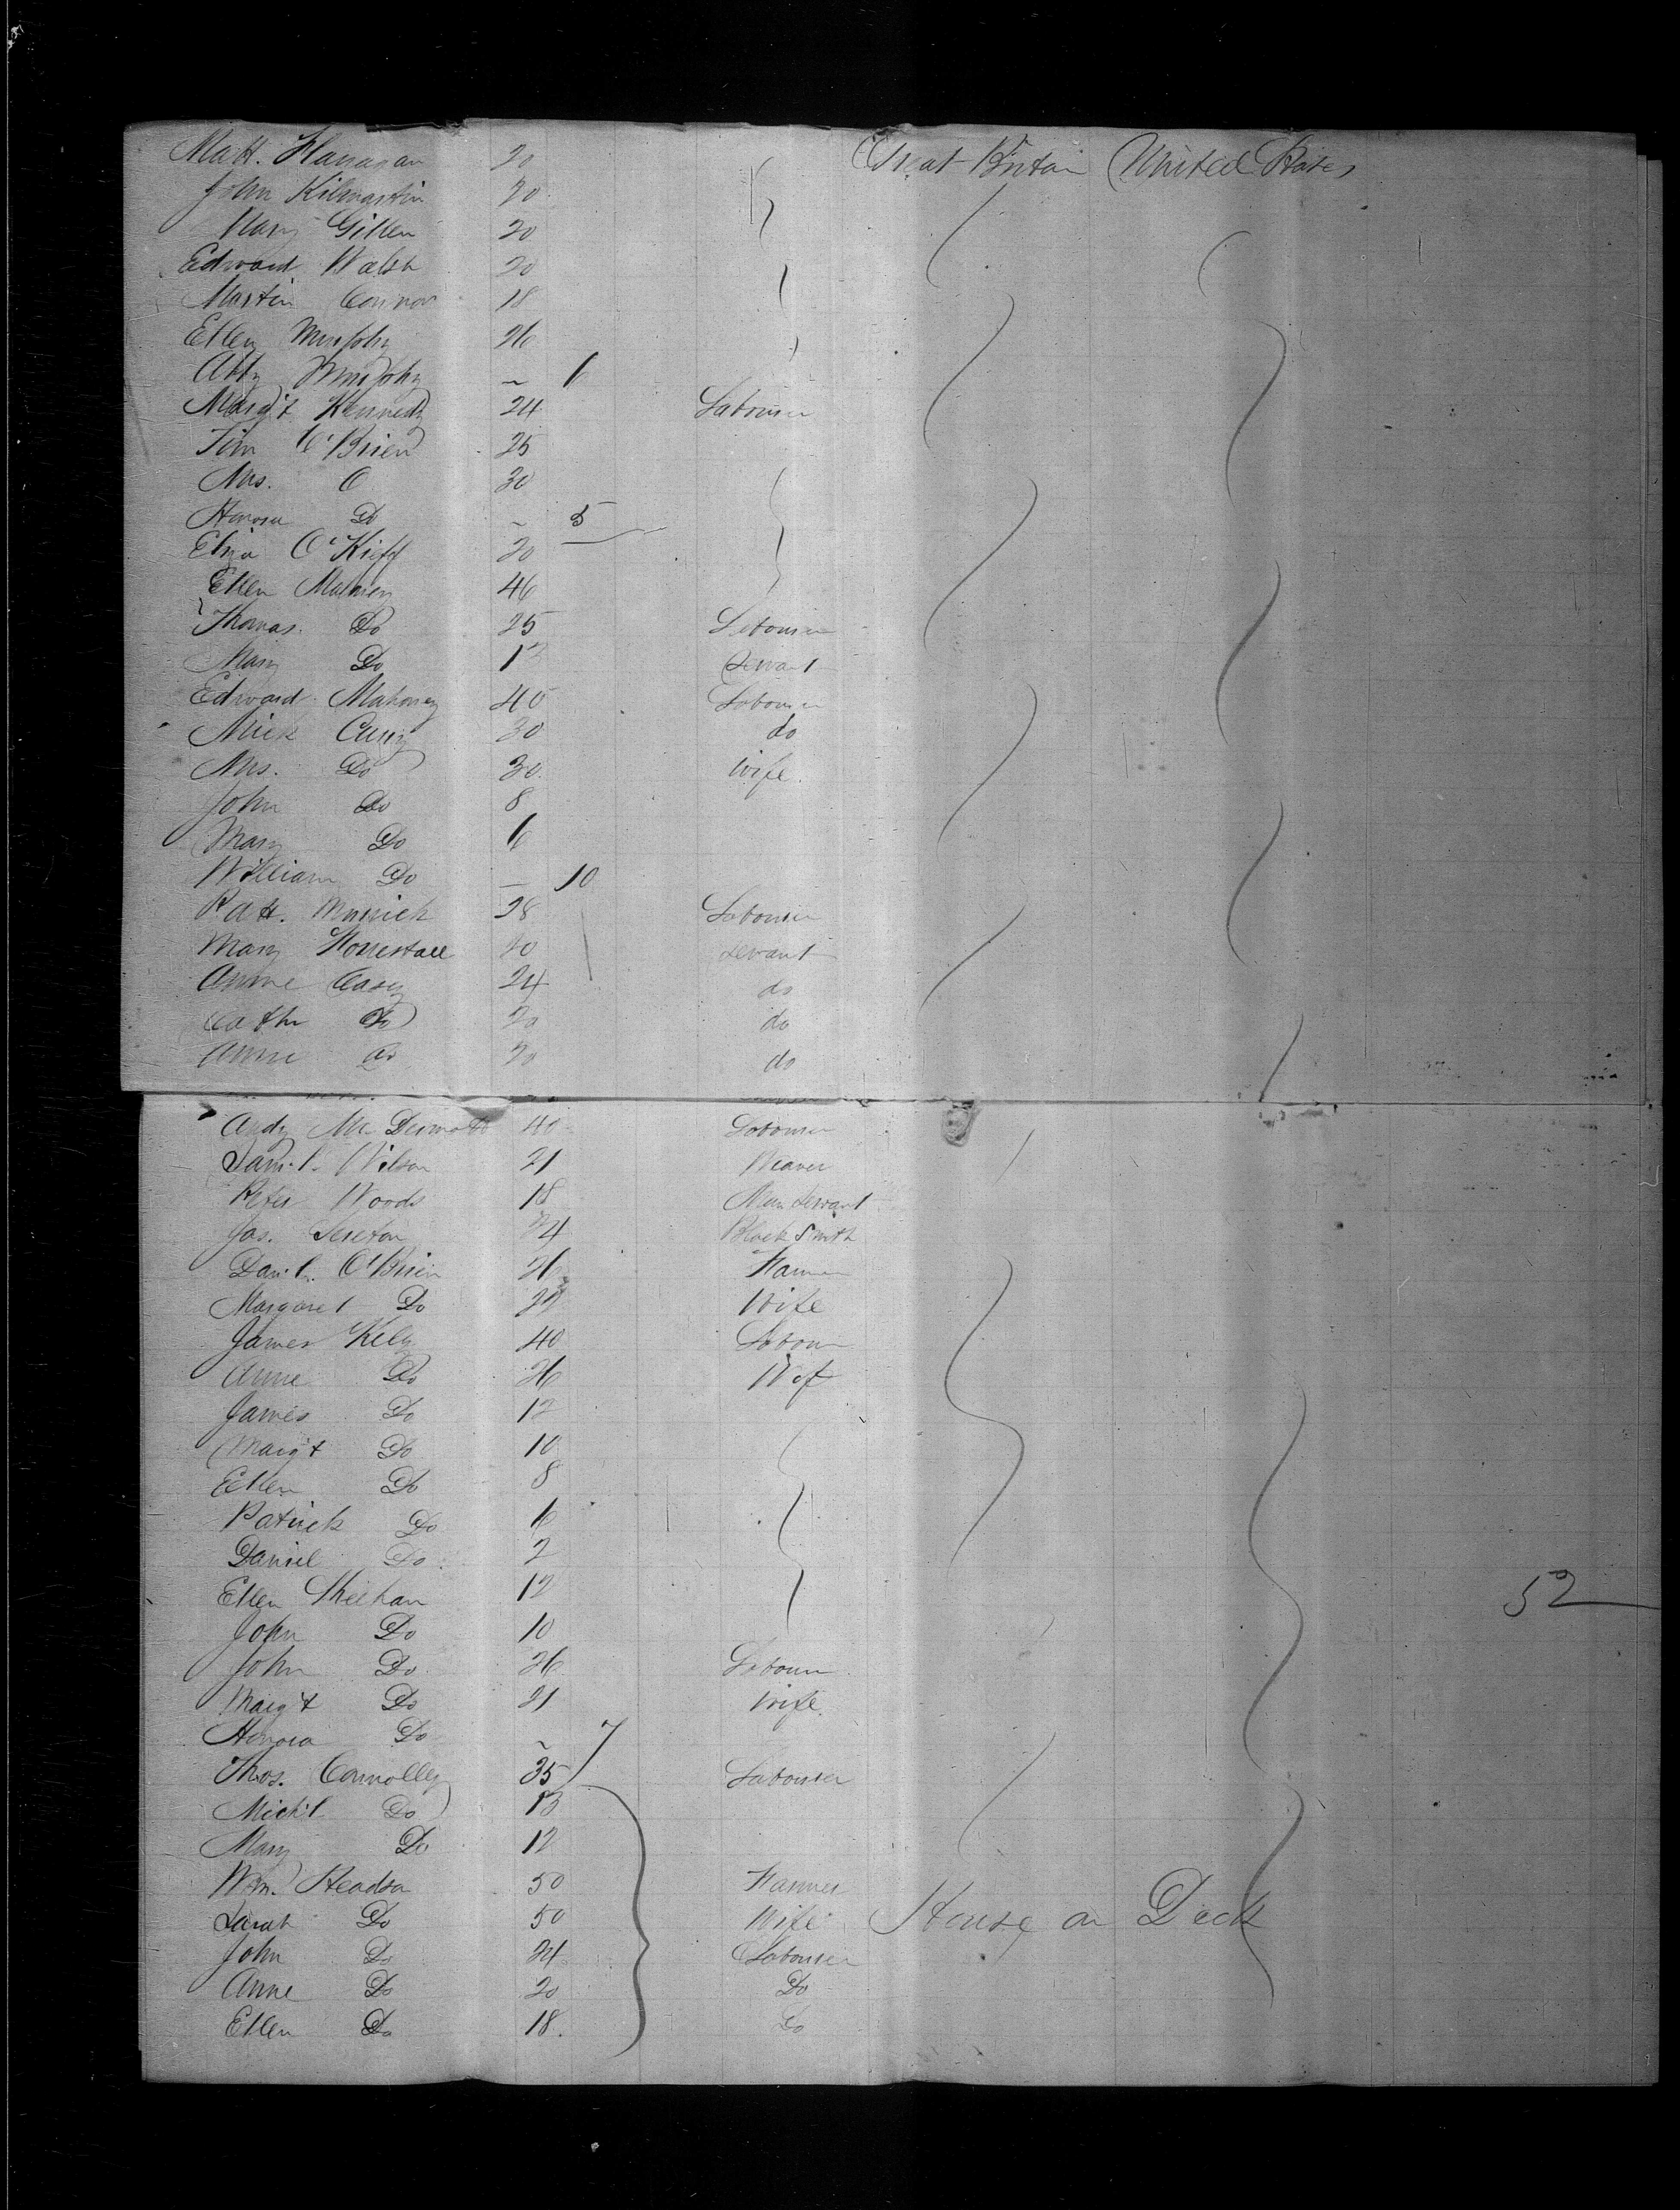 Matt. Flanagan 20 Great Britain United States
John Kilmartin 20
Mary Gillen 20
Edward Walsh 20
Martin Connor 18
Ellen Murphy 26
Abby Murphy ~ 6
Marg't Kennedy 24 Labourer
Tim O'Brien 25
Mrs. O 30
Honora Do ~ 5
Eliza O'Kieff 20
Ellen Mahoney 46
Thomas Do 25 Labourer
Mary Do Servant
Edward Mahoney 40 Labourer
Mick Curry 30 do
Mrs. Do 30 Wife.
John Do 8
Mary Do 6
William Do — 10
Patt. Murrick 28 Labourer
Mary Forrestall 20 Servant
Anne Casey 24 do
Cath Do 20 do
Anne Do 20 do
Andy McDermott 40 Labourer
Sam'l. Wilson 21 Weaver
Peter Woods 18 Man Servant
Jas. Sexeton 24 Black Smith
Dan'l. O'Brien 26 Farmer
Margaret Do Wife
James Kely 40 Labour
Anne Do 26 Wif
James Do 12
Marg't Do 10
Ellen Do 8
Patrick Do 6
Daniel Do 2
Ellen Sheehan 12
John Do 10
John Do 26 Labour
Marg't Do 21 Wife.
Honora Do ~ 7
Thos. Connolley 35 Labourer
Mich'l Do 13
Mary Do 12
Wm. Headon 50 Farmer
Sarah Do 50 Wife House on Deck
John Do 24 Labourer
Anne Do 20 Do
Ellen Do 18. Do
52